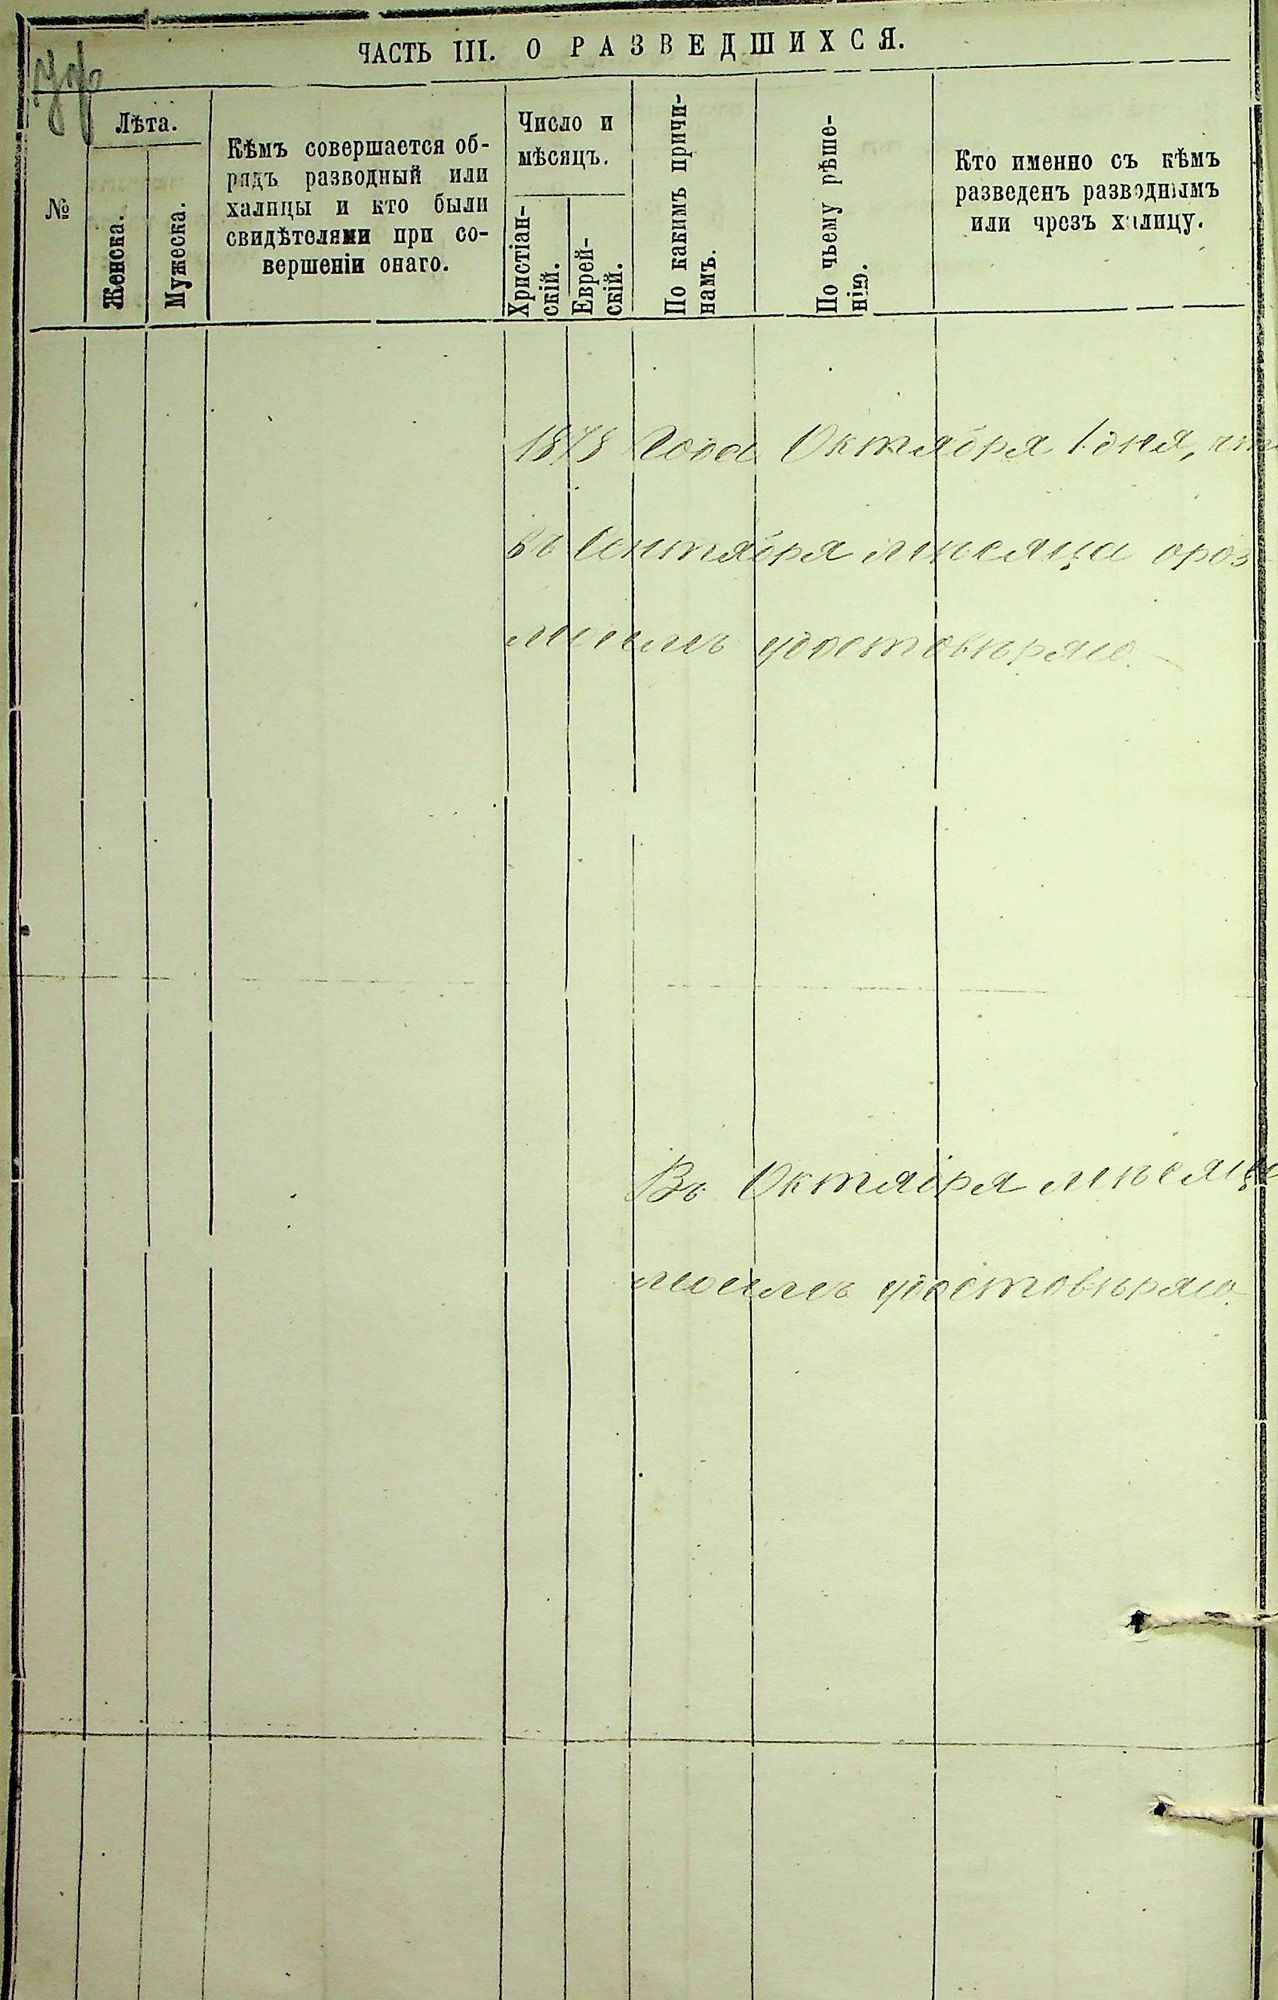 ЧАСТЬ III. О РАЗВЕДШИХСЯ.
№
Лѣта.
Женска.
Мужеска.
Кѣмъ совершается об-
рядъ разводный или
халицы и кто были
свидѣтелями при со-
вершеніи онаго.
Число и
мѣсяцъ.
Христіан-
скій.
Еврей-
скій.
По какимъ причи-
намъ.
По чьему рѣше-
нію.
Кто именно съ кѣмъ
разведенъ разводнымъ
или чрезъ халицу.
1878 Года Октября 1 дня, что
въ Сентября мѣсяца ороз
моимъ удостовѣряю.
Въ Октября мѣсяца
моимъ удостовѣряю